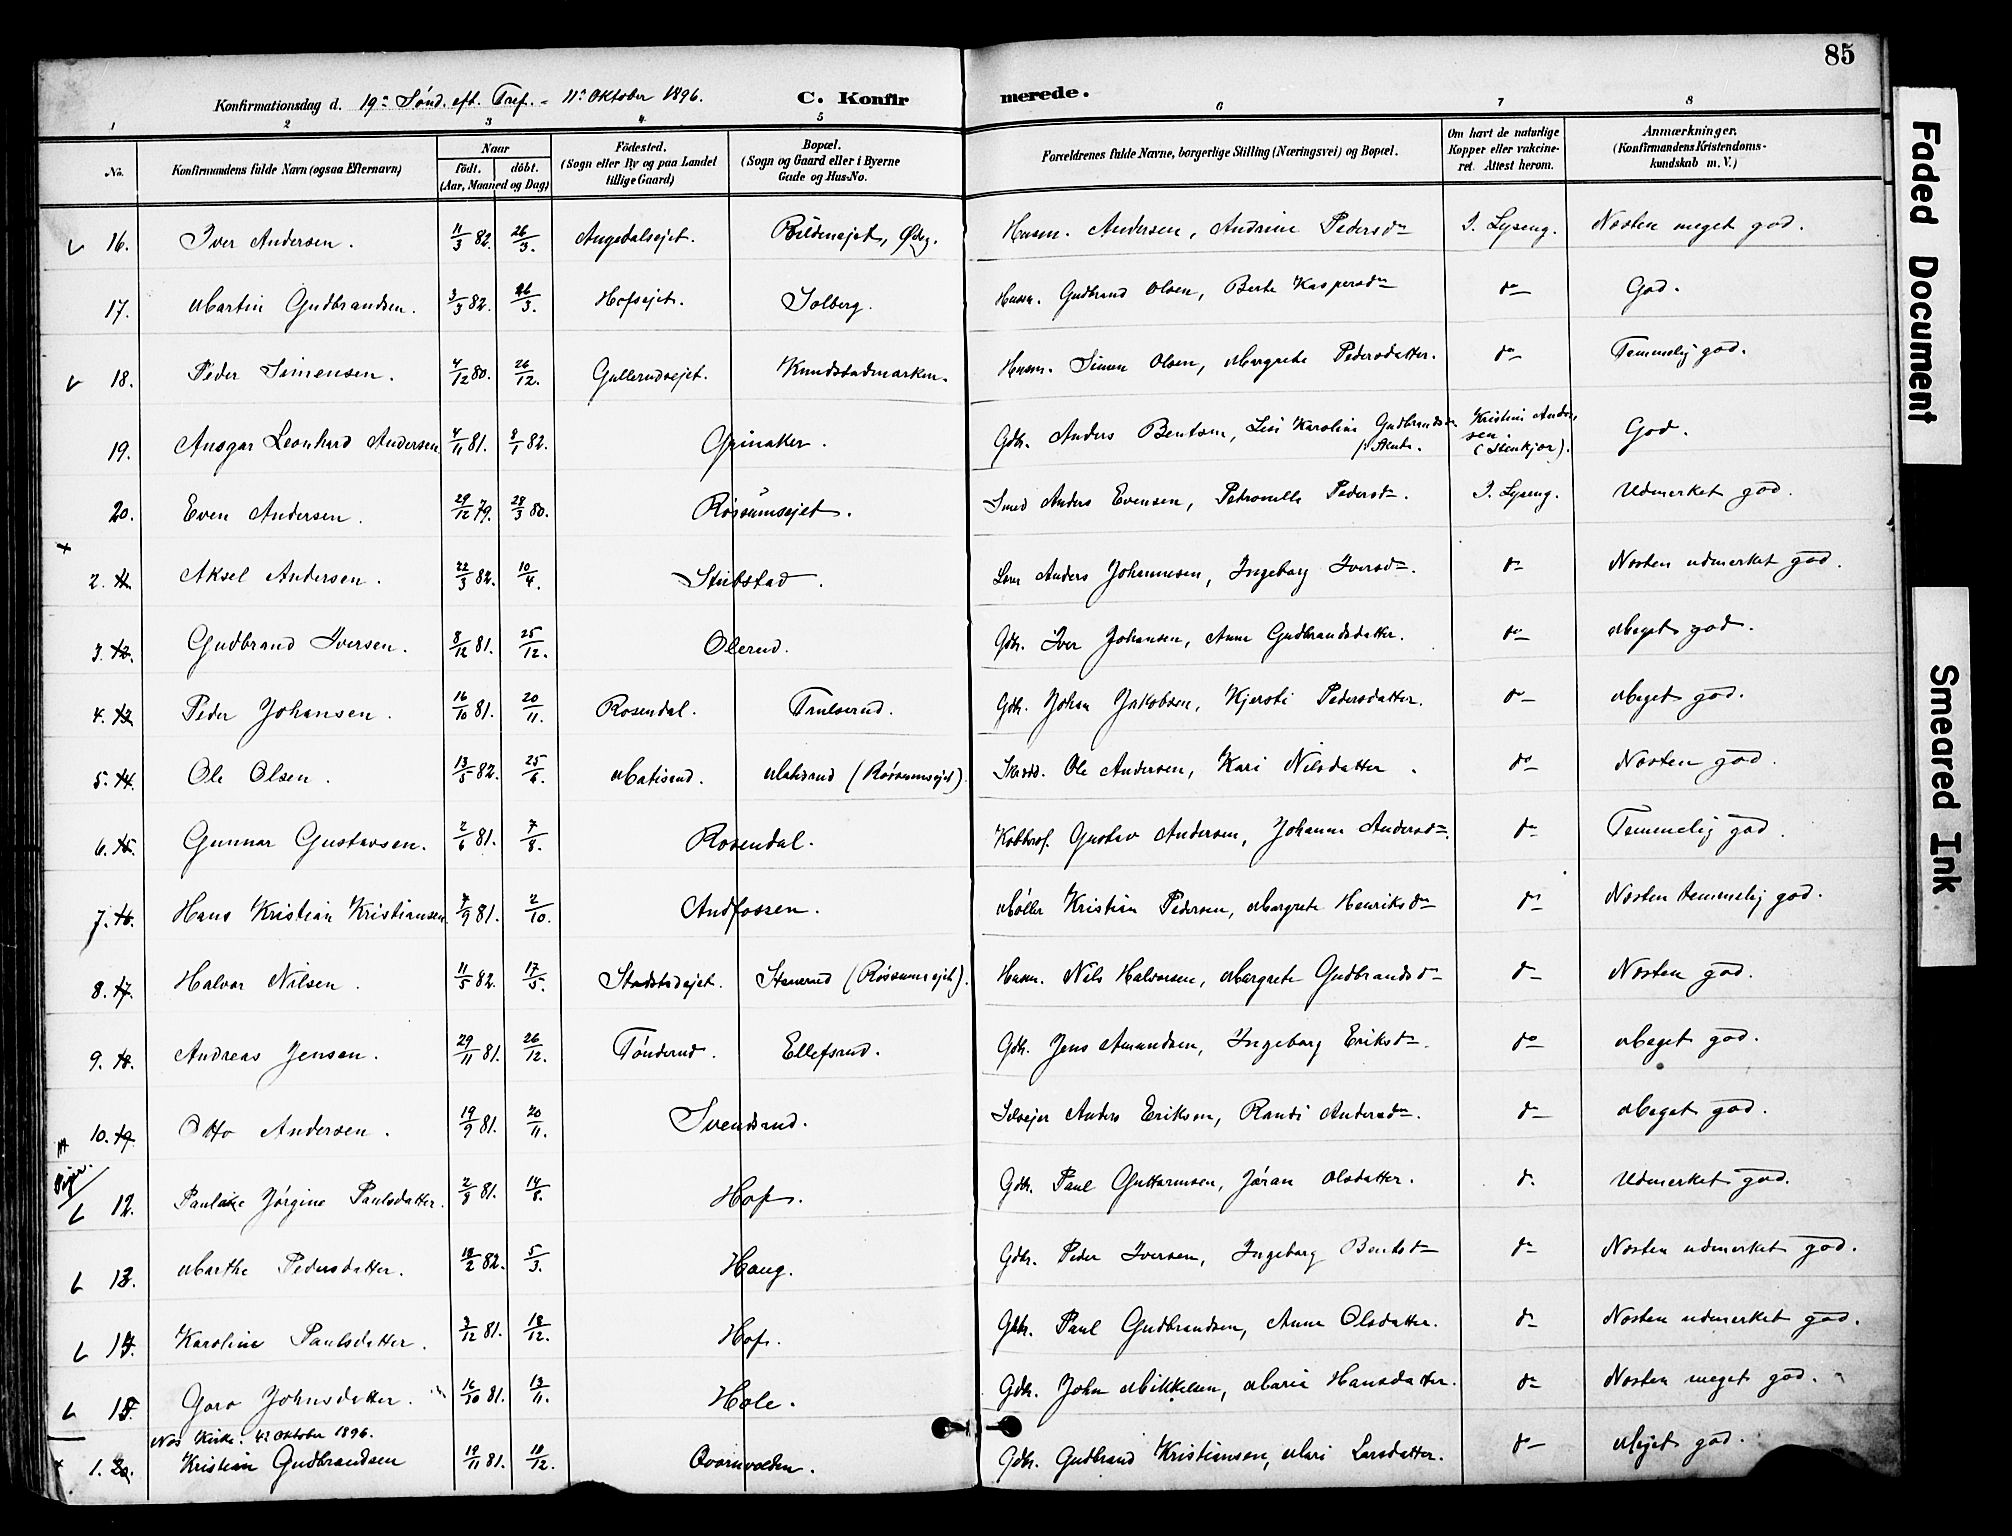 85
Konfirmationsdag d. 19de Sönd. eft. Tref. - 11te Oktober 1896. C. Konfirmerede.
1 2 3 4 5 6 7 8
No. Konfirmandens fulde Navn (ogsaa Efternavn) Naar födt. döbt. (Aar, Maaned og Dag) Födested. (Sogn eller By og paa Landet tillige Gaard) Bopæl. (Sogn og Gaard eller i Byerne Gade og Hus-No. Forældrenes fulde Navne, borgerlige Stilling (Næringsvei) og Bopæl. Om havt de naturlige Kopper eller vakcineret. Attest herom. Anmærkninger. (Konfirmandens Kristendomskundskab m. V.)
16. Iver Andersen. 11/3 82. 26/3. Augedalsejet. Husm. Andersen, Andrine Pedersdr I. Lyseng. Næsten meget god.
17. Martin Gudbrandsen. 3/3 82. 26/3. Hofsejet. Solberg. Husm. Gudbrand Olsen, Berte Kaspersdr do God.
18. Peder Simensen. 4/12 80. 26/12. Gullerudsejet. Kundstadmarken. Husm. Simen Olsen, Margrete Pedersdatter. do Temmelig god.
19. Ansgar Leonhard Andersen 4/11 81. 8/1 82. Grinaker. Gdb. Anders Bentsen, Lisi Karoline Gudbrandsdr Kristine Andersen (Stenkjær). God.
20. Even Andersen. 29/12 79. 28/3 80. Røssumsejet. Smed Anders Evensen, Petronelle Pedersdr. I. Lyseng. Udmerket god.
2. Aksel Andersen. 22/3 82. 10/4. Stubstad. Anders Johannesen, Ingeborg Iversdr. do Næsten udmerket god.
3. Gudbrand Iversen. 8/12 81. 25/12. Olerud. Gdb. Iver Johansen, Anne Gudbrandsdatter. do Meget god.
4. Peder Johansen. 16/10 81. 20/11. Rosendal. Trulserud. Gdb. Johan Jakobsen, Kjersti Pedersdatter. do Meget god.
5. 14. Ole Olsen. 13/5 82. 25/6. Matisrud. (Røssumsejet). Ole Andersen, Kari Nilsdatter. do Næsten god.
6. 15. Gunnar Gustavsen. 2/6 81. 7/8. Rosendal. Gustav Andersen, Johanne Andersdr. do Temmelig god.
7. 16. Hans Kristian Kristiansen 9/9 81. 2/10. Andfossen. Møller Kristian Pedersen, Margrete Henriksdr do Næsten temmelig god.
8. 17. Halvor Nilsen. 11/5 82. 17/5. Stadstadejet. Stenerud (Røssumsejet). Husm. Nils Halvorsen, Margrete Gudbrandsdr do Næsten god.
9. 18. Andreas Jensen. 29/11 81. 26/12. Tønderud. Ellefsrud. Gdb. Jens Amundsen, Ingeborg Eriksdr. do Meget god.
10. 19. Otto Andersen. 19/9 81. 20/11. Svendsrud. Selvejer Anders Eriksen, Randi Andersdr. do Meget god.
Piger.
12. Pauline Jørgine Paulsdatter. 2/8 81. 14/8. Hof. Gdb. Paul Guttormsen, Jøran Olsdatter. do. Udmerket god.
13. Marthe Pedersdatter. 18/2 82. 5/3. Haug. Gdb. Peder Iversen, Ingeborg Bentsdr do Næsten udmerket god.
14. Karoline Paulsdatter. 3/12 81. 18/12. Hof. Gdb. Paul Gudbrandsen, Anne Olsdatter. do Næsten udmerket god.
15. Goro Johnsdatter. 16/10 81. 13/11. Hole. Gdb. John Mikkelsen, Marie Hansdatter. do Næsten meget god.
Næs Kirke. Oktober 1896.
1. 20. Kristian Gudbrandsen 19/11 81. 18/12. Qvarnvolden. Gdb. Gudbrand Kristiansen, Mari Larsdatter. do Meget god.
Faded Document
Smeared Ink